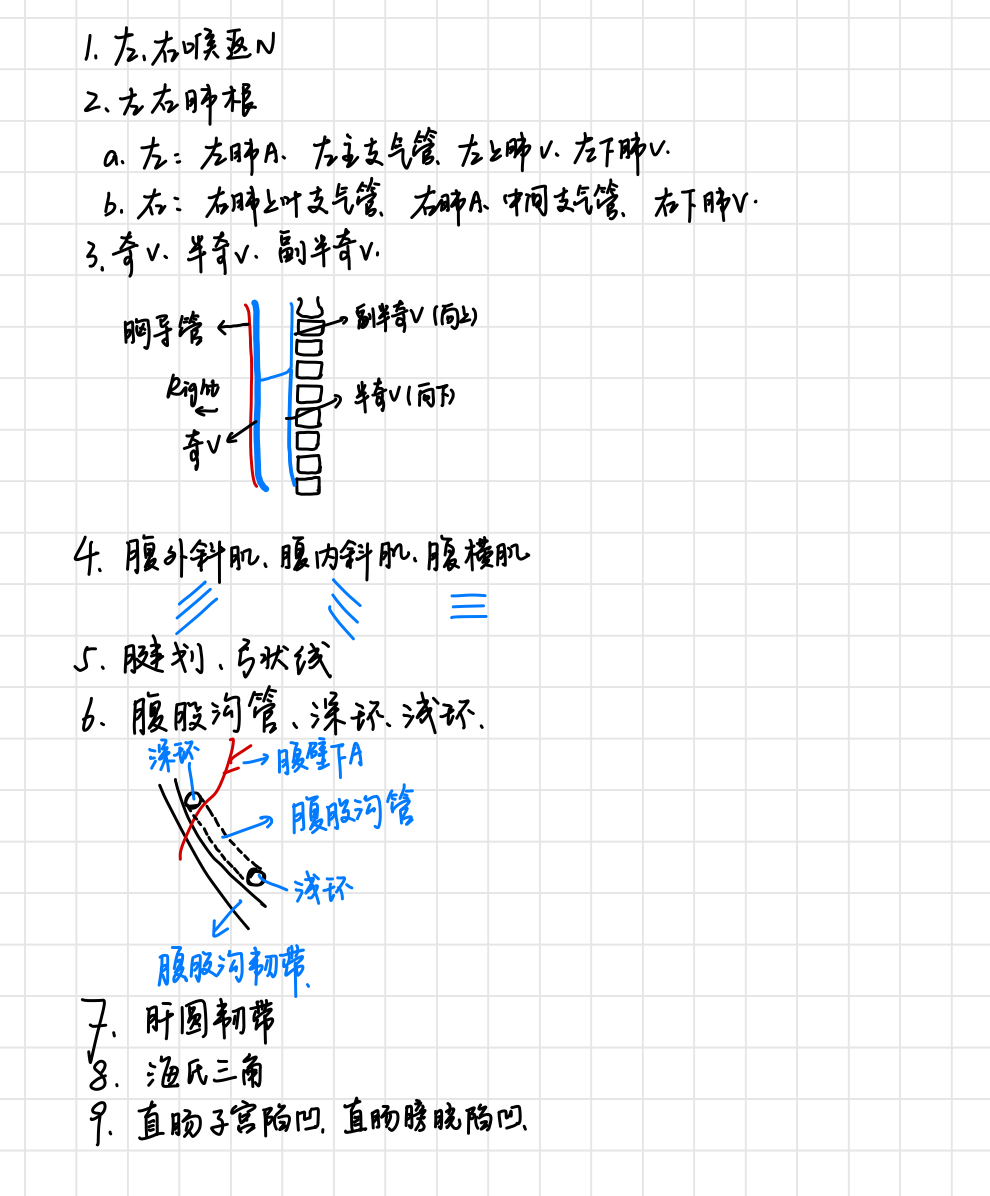 1. 左、右喉返N
2. 左右肺根
a. 左：左肺A、左主支气管、左上肺V、左下肺V.
b. 右：右肺上叶支气管、右肺A、中间支气管、右下肺V.
3. 奇V、半奇V、副半奇V.
胸导管
副半奇V(向上)
Right
半奇V(向下)
奇V
4. 腹外斜肌、腹内斜肌、腹横肌
5. 腱划、弓状线
6. 腹股沟管、深环、浅环.
深环
腹壁下A
腹股沟管
浅环
腹股沟韧带.
7. 肝圆韧带
8. 海氏三角
9. 直肠子宫陷凹、直肠膀胱陷凹.